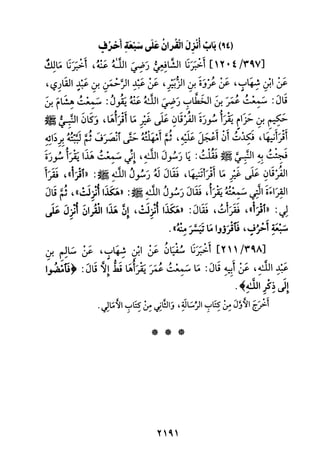 (١٤) بَابُ أُنْزِلَ الْقُرْآنُ عَلَى سَبْعَةِ أَحْرُفٍ
[١٢٠٤/٣٩٧] أَخْبَرَنَا الشَّافِعِيُّ رَضِيَ اللَّهُ عَنْهُ، أَخْبَرَنَا مَالِكٌ
عَنْ ابْنِ شِهَابٍ، عَنْ عُرْوَةَ بْنِ الزُّبَيْرِ، عَنْ عَبْدِ الرَّحْمَنِ بْنِ عَبْدٍ الْقَارِيِّ،
قَالَ: سَمِعْتُ عُمَرَ بْنَ الْخَطَّابِ رَضِيَ اللَّهُ عَنْهُ يَقُولُ: سَمِعْتُ هِشَامَ بْنَ
حَكِيمِ بْنِ حِزَامٍ يَقْرَأُ سُورَةَ الْفُرْقَانِ عَلَى غَيْرِ مَا أَقْرَأُهَا، وَكَانَ النَّبِيُّ ﷺ
أَقْرَأَنِيهَا، فَكِدْتُ أَنْ أَعْجَلَ عَلَيْهِ، ثُمَّ أَمْهَلْتُهُ حَتَّى انْصَرَفَ ثُمَّ لَبَّبْتُهُ بِرِدَائِهِ
فَجِئْتُ بِهِ النَّبِيَّ ﷺ فَقُلْتُ: يَا رَسُولَ اللَّهِ، إِنِّي سَمِعْتُ هَذَا يَقْرَأُ سُورَةَ
الْفُرْقَانِ عَلَى غَيْرِ مَا أَقْرَأْتَنِيهَا، فَقَالَ لَهُ رَسُولُ اللَّهِ ﷺ: «اقْرَأْ»، فَقَرَأَ
الْقِرَاءَةَ الَّتِي سَمِعْتُهُ يَقْرَأُ، فَقَالَ رَسُولُ اللَّهِ ﷺ: «هَكَذَا أُنْزِلَتْ»، ثُمَّ قَالَ
لِي: «اقْرَأْ»، فَقَرَأْتُ، فَقَالَ: «هَكَذَا أُنْزِلَتْ، إِنَّ هَذَا الْقُرْآنَ أُنْزِلَ عَلَى
سَبْعَةِ أَحْرُفٍ، فَاقْرَءُوا مَا تَيَسَّرَ مِنْهُ».
[٢١١/٣٩٨] أَخْبَرَنَا سُفْيَانُ عَنْ ابْنِ شِهَابٍ، عَنْ سَالِمِ بْنِ
عَبْدِ اللَّهِ، عَنْ أَبِيهِ قَالَ: مَا سَمِعْتُ عُمَرَ يَقْرَأُهَا قَطُّ إِلَّا قَالَ: ﴿فَامْضُوا
إِلَى ذِكْرِ اللَّهِ﴾.
أَخْرَجَ الْأَوَّلَ مِنْ كِتَابِ الرِّسَالَةِ، وَالثَّانِي مِنْ كِتَابِ الْأَمَالِي.
* * *
٢١٩١